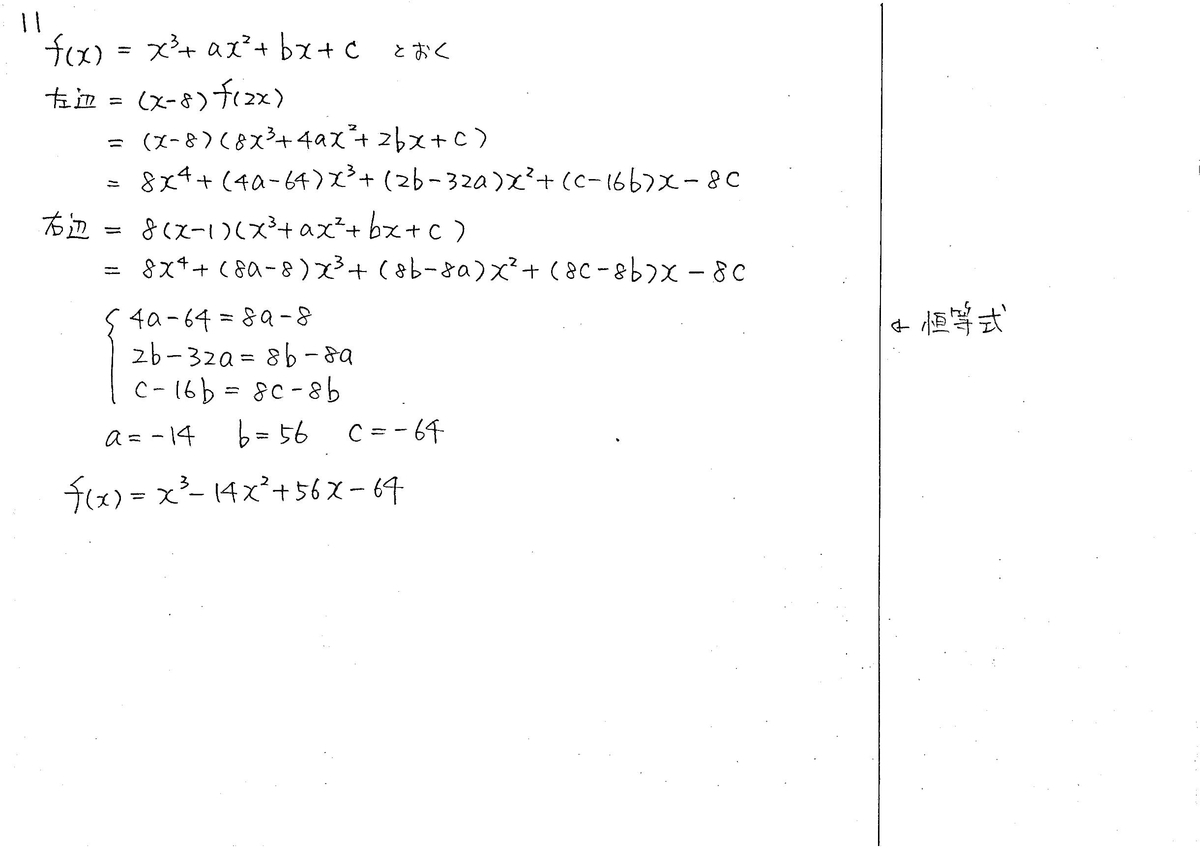 11
f(x) = x³+ ax²+ bx + c とおく
左辺 = (x-8) f(2x)
= (x-8)(8x³+4ax²+2bx+c)
= 8x⁴+(4a-64)x³+(2b-32a)x²+(c-16b)x-8c
右辺 = 8(x-1)(x³+ax²+bx+c)
= 8x⁴+(8a-8)x³+(8b-8a)x²+(8c-8b)x-8c
{ 4a-64 = 8a-8
2b-32a = 8b-8a
c-16b = 8c-8b
← 恒等式
a=-14 b=56 c=-64
f(x) = x³-14x²+56x-64